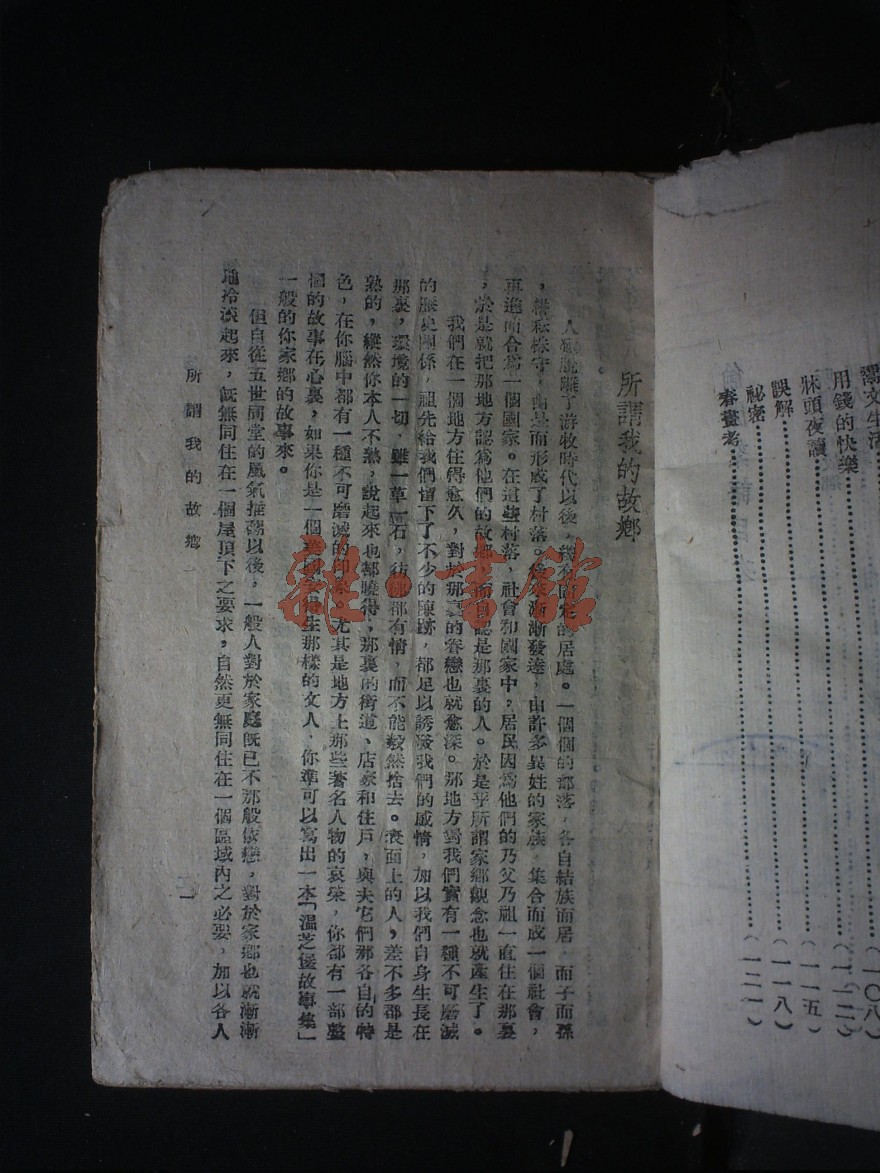 鬻文生活……(一〇八)
用錢的快樂……(一一二)
牀頭夜讀……(一一五)
誤解……(一一八)
祕密……(一二一)
春畫考
所謂我的故鄉
人類脫離了游牧時代以後，纔有固定的居處。一個個的部落，各自結族而居，而子而孫
，由是而形成了村落。後來漸漸發達，由許多異姓的家族，集合而成一個社會，
再進而合爲一個國家。在這些村落，社會和國家中，居民因爲他們的乃父乃祖一直住在那裏
，於是就把那地方認爲他們的故鄉，而自認是那裏的人。於是乎所謂家鄉觀念也就產生了。
我們在一個地方住得愈久，對於那裏的眷戀也就愈深。那地方對我們實有一種不可磨滅
的歷史關係，祖先給我們留下了不少的陳跡，都足以誘發我們的感情，加以我們自身生長在
那裏，環境的一切，雖一草一石，彷彿都有情，而不能毅然捨去。表面上的人，差不多都是
熟的，縱然你本人不熟，說起來也都曉得，那裏的街道、店家和住戶，與夫它們那各自的特
色，在你腦中都有一種不可磨滅的印象，尤其是地方上那些著名人物的哀榮，你都有一部整
個的故事在心裏，如果你是一個美國安得生那樣的文人，你準可以寫出一本「溫芝堡故事集」
一般的你家鄉的故事來。
但自從五世同堂的風氣摧蕩以後，一般人對於家庭旣已不那般依戀，對於家鄉也就漸漸
地冷淡起來，旣無同住在一個屋頂下之要求，自然更無同住在一個區域內之必要，加以各人
所謂我的故鄉
一
雜·書館